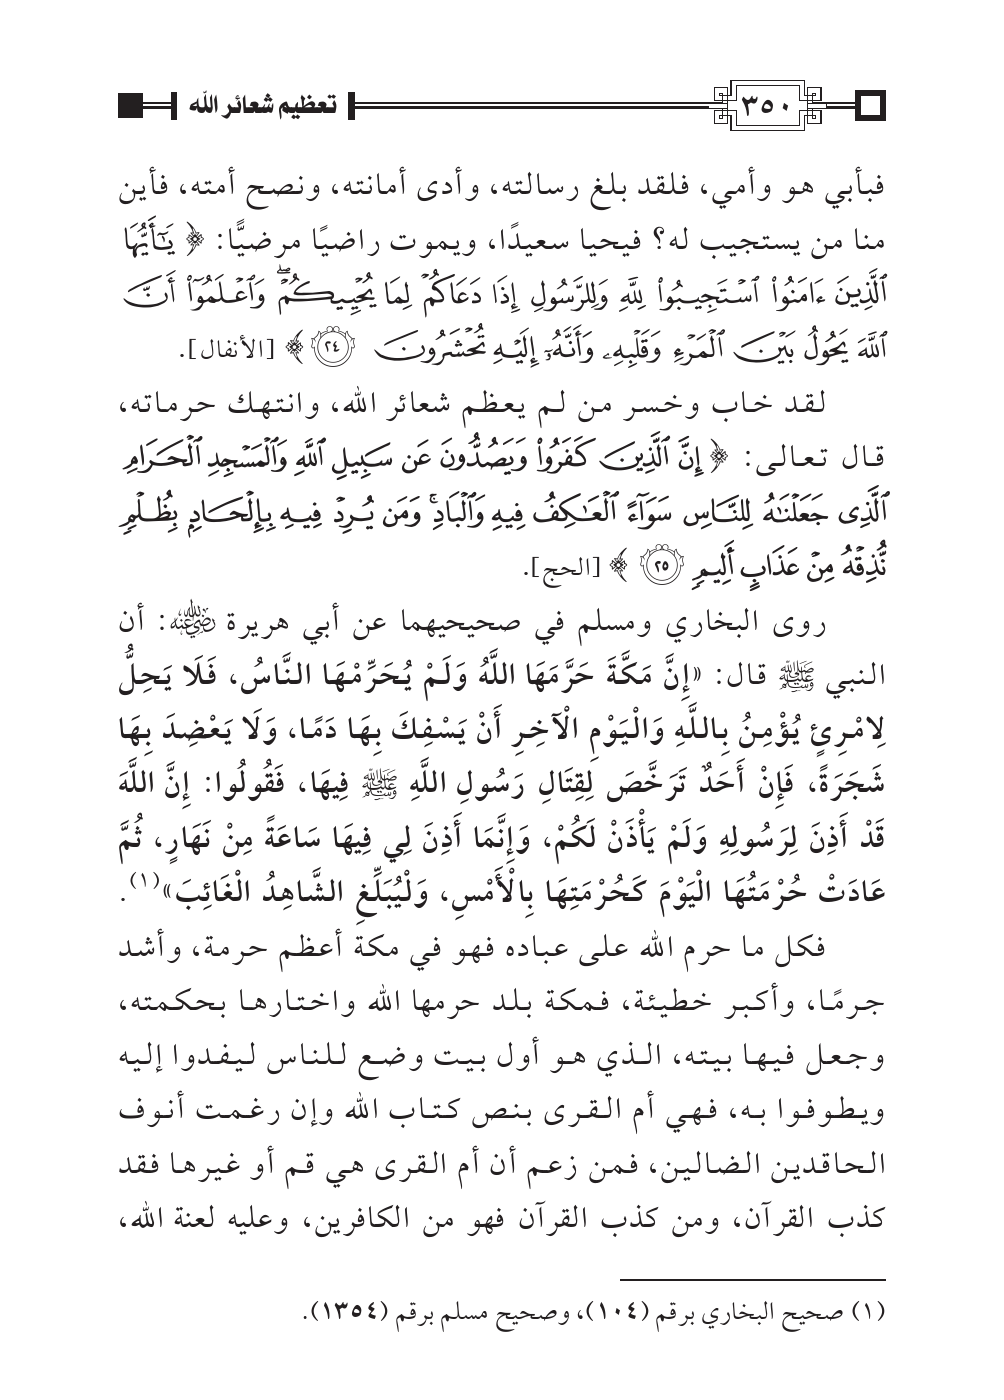 ٣٥٠ تعظيم شعائر الله
فبأبي هو وأمي، فلقد بلغ رسالته، وأدى أمانته، ونصح أمته، فأين
منا من يستجيب له؟ فيحيا سعيدًا، ويموت راضيًا مرضيًّا: ﴿ يَٰٓأَيُّهَا
ٱلَّذِينَ ءَامَنُوا۟ ٱسْتَجِيبُوا۟ لِلَّهِ وَلِلرَّسُولِ إِذَا دَعَاكُمْ لِمَا يُحْيِيكُمْ ۖ وَٱعْلَمُوٓا۟ أَنَّ
ٱللَّهَ يَحُولُ بَيْنَ ٱلْمَرْءِ وَقَلْبِهِۦ وَأَنَّهُۥٓ إِلَيْهِ تُحْشَرُونَ ٢٤ ﴾ [الأنفال].
لقد خاب وخسر من لم يعظم شعائر الله، وانتهك حرماته،
قال تعالى: ﴿ إِنَّ ٱلَّذِينَ كَفَرُوا۟ وَيَصُدُّونَ عَن سَبِيلِ ٱللَّهِ وَٱلْمَسْجِدِ ٱلْحَرَامِ
ٱلَّذِى جَعَلْنَٰهُ لِلنَّاسِ سَوَآءً ٱلْعَٰكِفُ فِيهِ وَٱلْبَادِ ۚ وَمَن يُرِدْ فِيهِ بِإِلْحَادٍۭ بِظُلْمٍ
نُّذِقْهُ مِنْ عَذَابٍ أَلِيمٍ ٢٥ ﴾ [الحج].
روى البخاري ومسلم في صحيحيهما عن أبي هريرة رضي الله عنه: أن
النبي ﷺ قال: «إِنَّ مَكَّةَ حَرَّمَهَا اللَّهُ وَلَمْ يُحَرِّمْهَا النَّاسُ، فَلَا يَحِلُّ
لِامْرِئٍ يُؤْمِنُ بِاللَّهِ وَالْيَوْمِ الْآخِرِ أَنْ يَسْفِكَ بِهَا دَمًا، وَلَا يَعْضِدَ بِهَا
شَجَرَةً، فَإِنْ أَحَدٌ تَرَخَّصَ لِقِتَالِ رَسُولِ اللَّهِ ﷺ فِيهَا، فَقُولُوا: إِنَّ اللَّهَ
قَدْ أَذِنَ لِرَسُولِهِ وَلَمْ يَأْذَنْ لَكُمْ، وَإِنَّمَا أَذِنَ لِي فِيهَا سَاعَةً مِنْ نَهَارٍ، ثُمَّ
عَادَتْ حُرْمَتُهَا الْيَوْمَ كَحُرْمَتِهَا بِالْأَمْسِ، وَلْيُبَلِّغِ الشَّاهِدُ الْغَائِبَ»(١).
فكل ما حرم الله على عباده فهو في مكة أعظم حرمة، وأشد
جرمًا، وأكبر خطيئة، فمكة بلد حرمها الله واختارها بحكمته،
وجعل فيها بيته، الذي هو أول بيت وضع للناس ليفدوا إليه
ويطوفوا به، فهي أم القرى بنص كتاب الله وإن رغمت أنوف
الحاقدين الضالين، فمن زعم أن أم القرى هي قم أو غيرها فقد
كذب القرآن، ومن كذب القرآن فهو من الكافرين، وعليه لعنة الله،
(١) صحيح البخاري برقم (١٠٤)، وصحيح مسلم برقم (١٣٥٤).